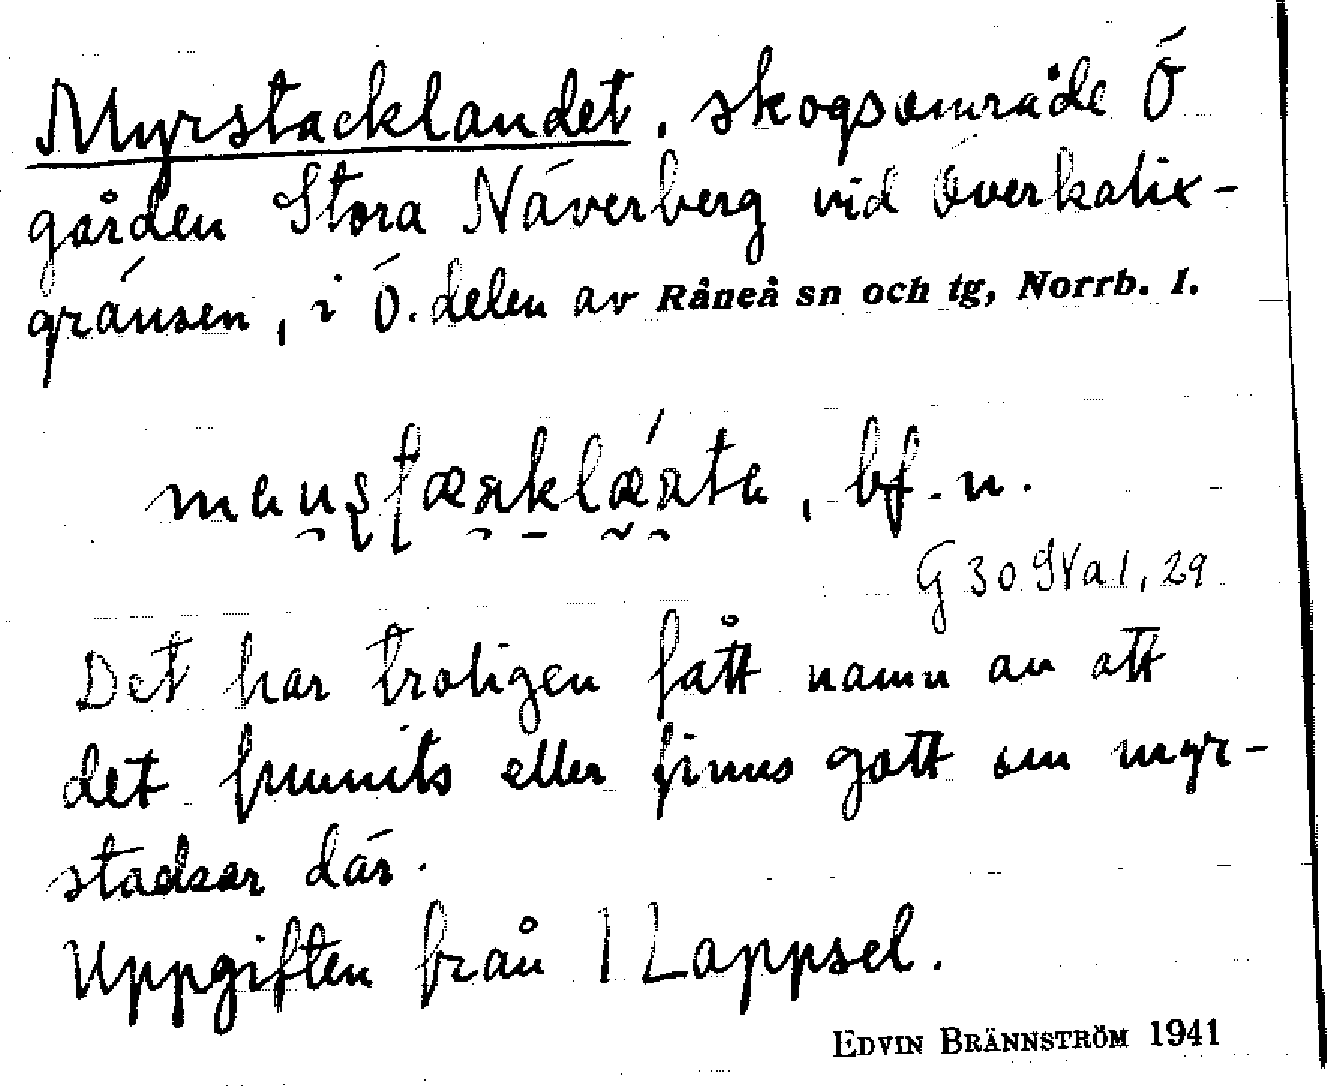 Myrstacklandet, skogsområde Ö
gården Stora Näverberg vid Överkalix-
gränsen, i Ö. delen av Råneå sn och tg, Norrb. l.
bf. n.
G 30 Na 1, 29
Det har troligen fått namn av att
det funnits eller finns gott om myr-
stackar där.
Uppgiften från 1 Lappsel.
EDVIN BRÄNNSTRÖM 1941